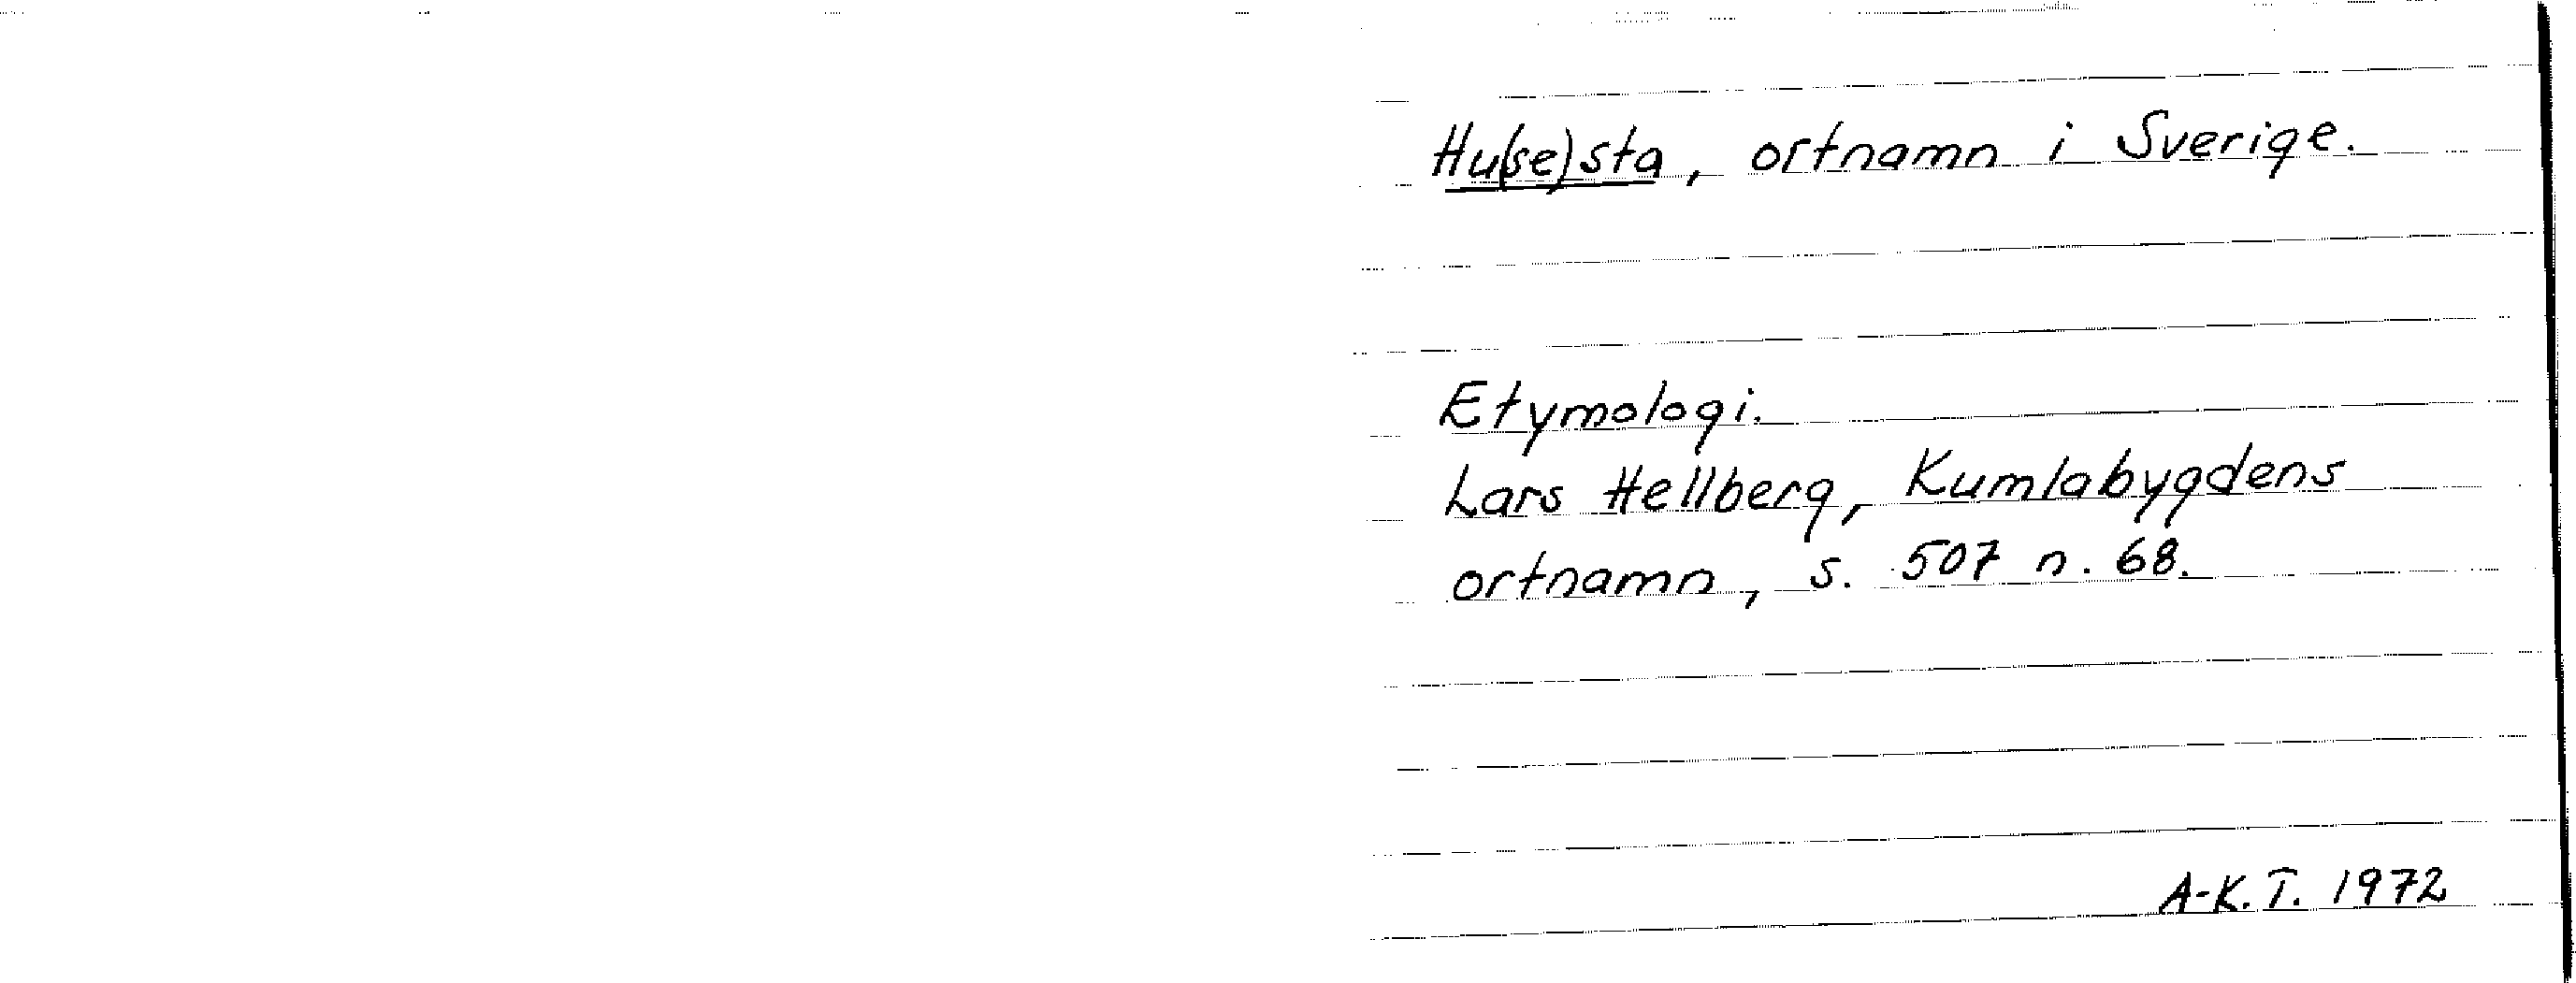 Hu(se)sta, ortnamn i Sverige.
Etymologi.
Lars Hellberg, Kumlabygdens
ortnamn, s. 507 n. 68.
A-K. T. 1972